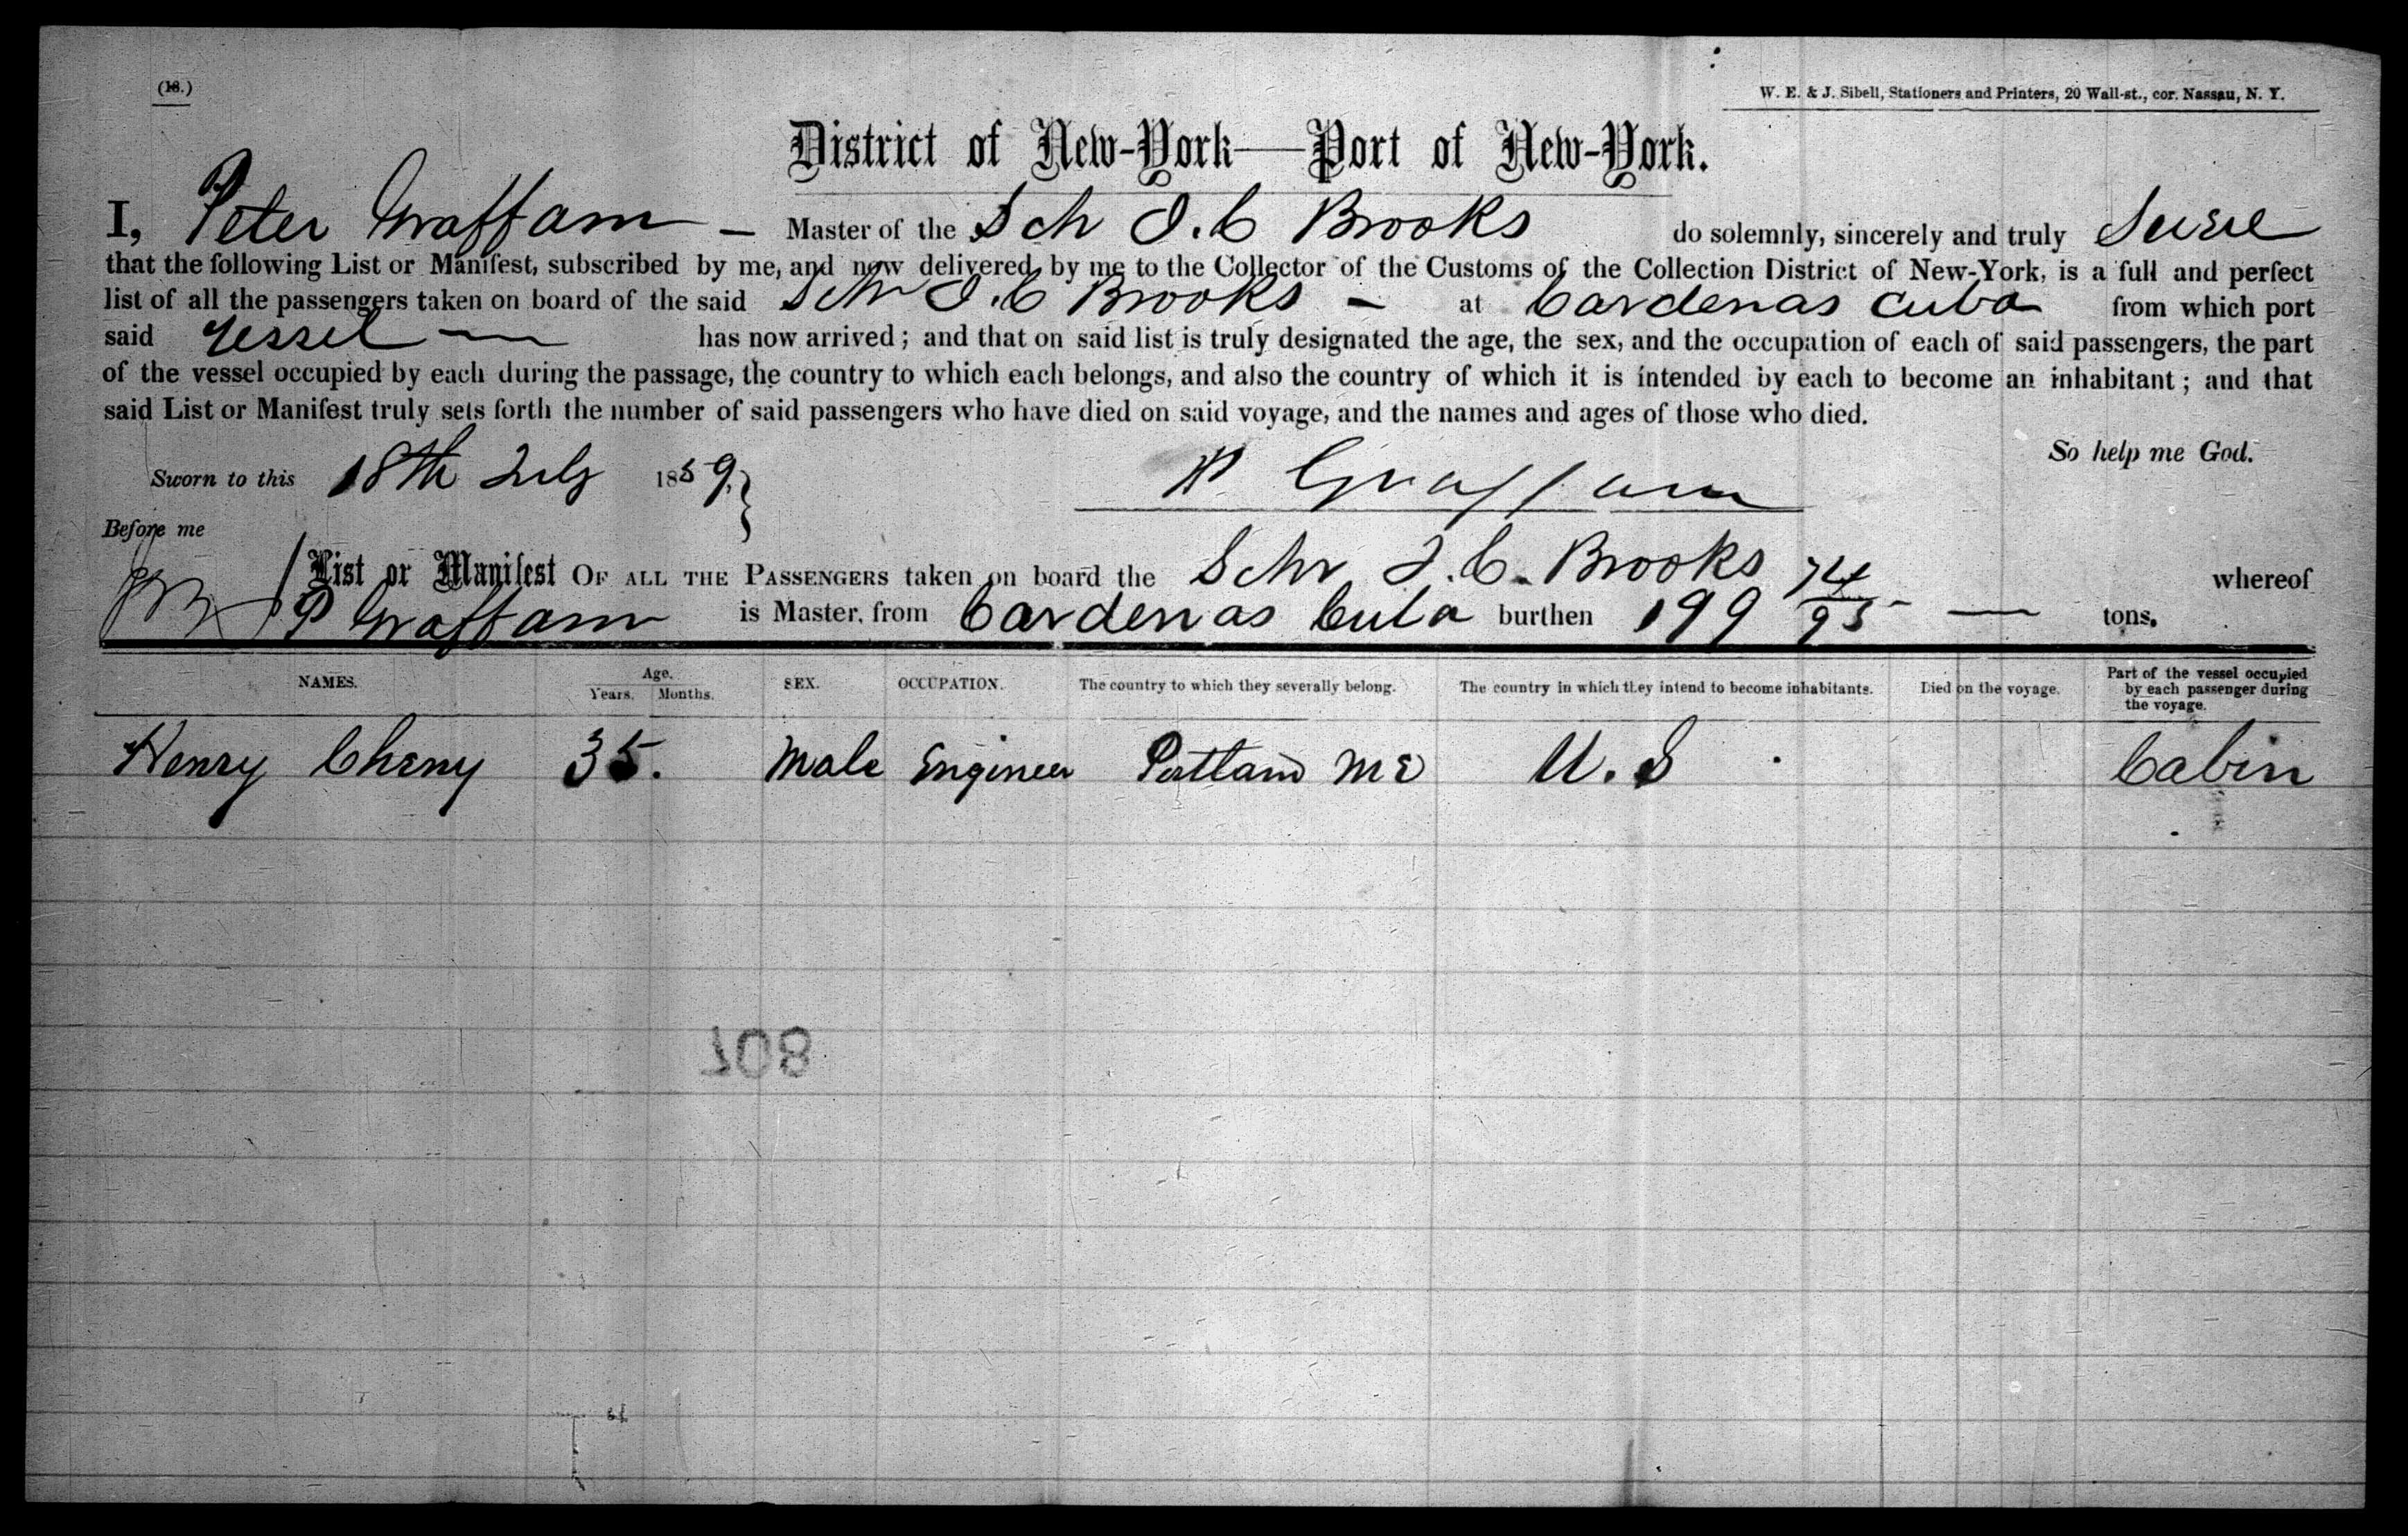 (18.)
W. E. & J. Sibell, Stationers and Printers, 20 Wall-st., cor. Nassau, N. Y.
District of New-York—Port of New-York.
I, Peter Graffam — Master of the Sch I. C Brooks do solemnly, sincerely and truly
that the following List or Manifest, subscribed by me, and now delivered by me to the Collector of the Customs of the Collection District of New-York, is a full and perfect
list of all the passengers taken on board of the said Schr I. C Brooks – at Cardenas Cuba from which port
said Vessel — has now arrived; and that on said list is truly designated the age, the sex, and the occupation of each of said passengers, the part
of the vessel occupied by each during the passage, the country to which each belongs, and also the country of which it is intended by each to become an inhabitant; and that
said List or Manifest truly sets forth the number of said passengers who have died on said voyage, and the names and ages of those who died.
So help me God.
Sworn to this 18th July 1859. } P Graffam
Before me
List or Manifest OF ALL THE PASSENGERS taken on board the Schr I. C. Brooks whereof
P Graffam is Master, from Cardenas Cuba burthen 199 74/95 — tons.
NAMES. Age. Years. Months. SEX. OCCUPATION. The country to which they severally belong. The country in which they intend to become inhabitants. Died on the voyage. Part of the vessel occupied by each passenger during the voyage.
Henry Cheny 35. Male Engineer Portland Me U. S Cabin
708